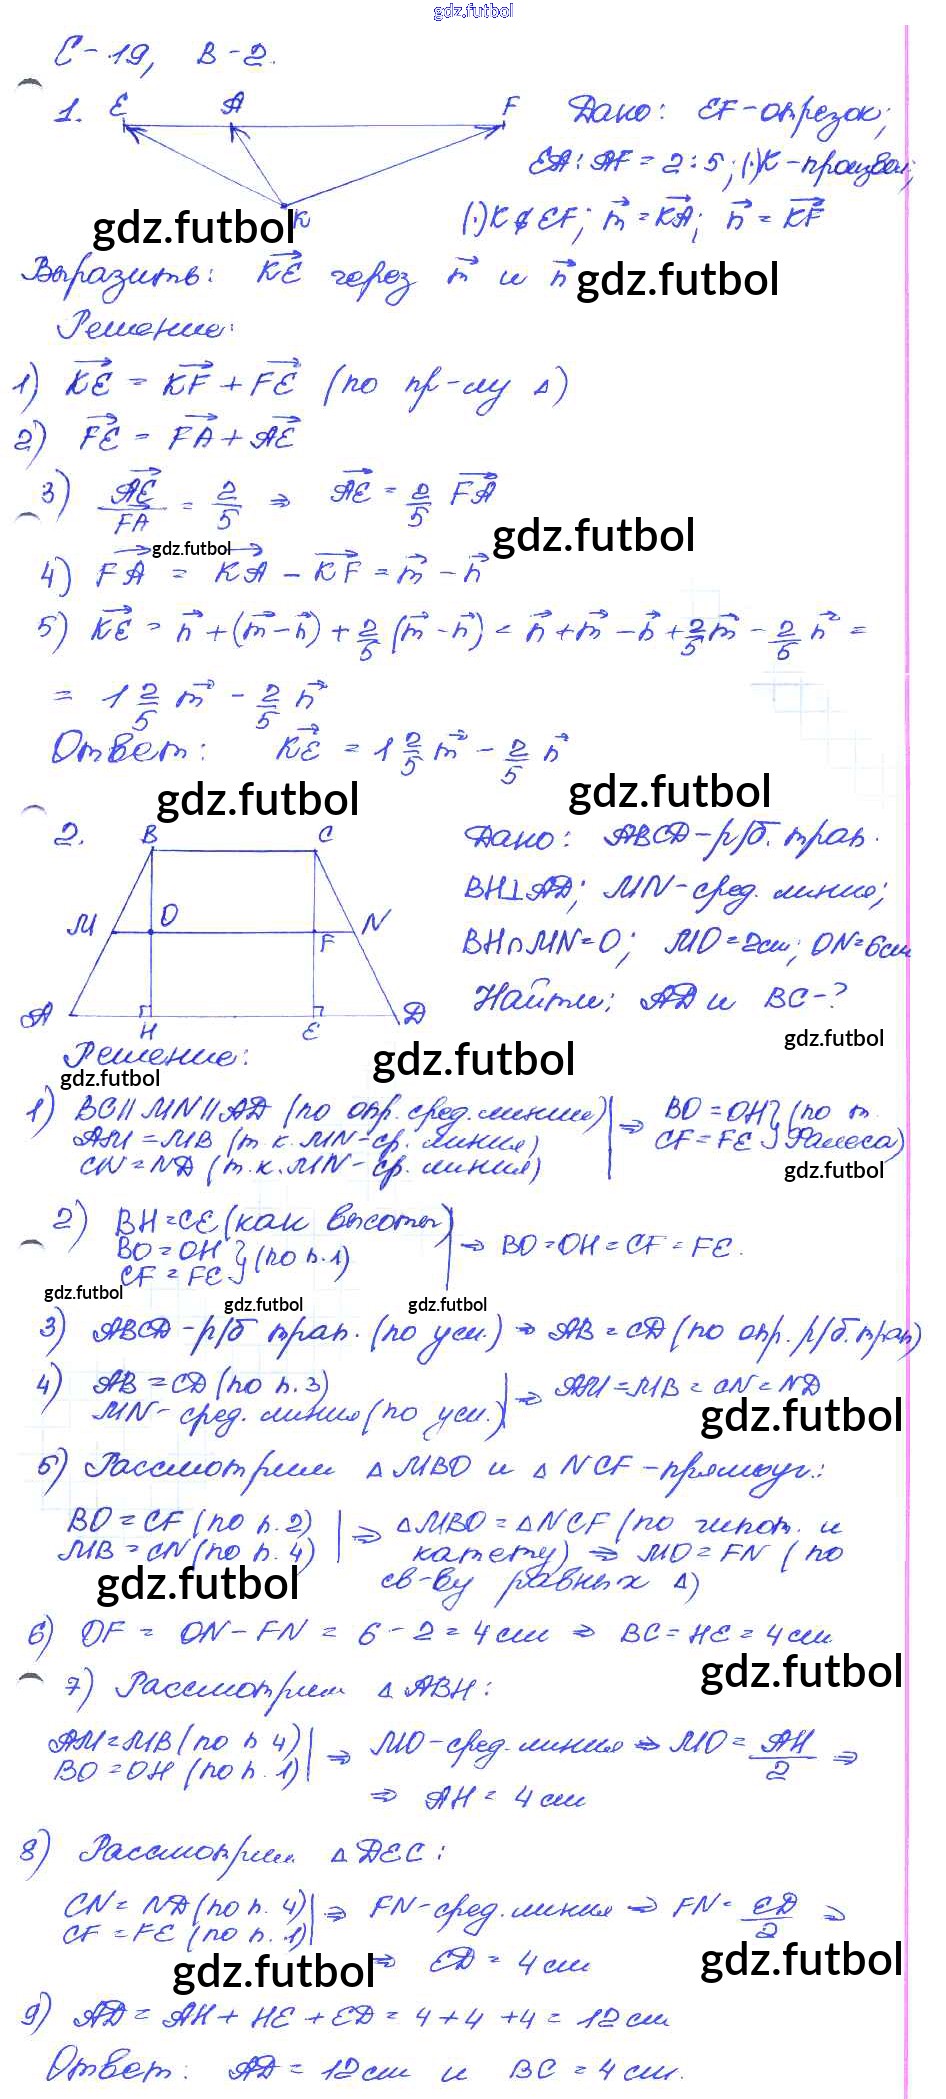 gdz.futbol
С-19, В-2.
1. E A F K
Дано: EF-отрезок;
EA:AF=2:5; (·)K-произвол;
(·)K∉EF; m⃗=KA⃗; n⃗=KF⃗
gdz.futbol
Выразить: KE⃗ через m⃗ и n⃗
gdz.futbol
Решение:
1) KE⃗ = KF⃗ + FE⃗ (по пр-лу Δ)
2) FE⃗ = FA⃗ + AE⃗
3) AE⃗/FA = 2/5 ⇒ AE⃗ = 2/5 FA⃗
gdz.futbol
gdz.futbol
4) FA⃗ = KA⃗ - KF⃗ = m⃗ - n⃗
5) KE⃗ = n⃗ + (m⃗-n⃗) + 2/5 (m⃗-n⃗) = n⃗+m⃗-n⃗+2/5m⃗ - 2/5 n⃗ =
= 1 2/5 m⃗ - 2/5 n⃗
Ответ: KE⃗ = 1 2/5 m⃗ - 2/5 n⃗
gdz.futbol
gdz.futbol
2. B C M O F N A H E D
Дано: ABCD-р/б. трап.
BH⊥AD; MN-сред. линия;
BH∩MN=O; MO=2см; ON=6см
Найти: AD и BC-?
gdz.futbol
Решение:
gdz.futbol
gdz.futbol
1) BC∥MN∥AD (по опр. сред. линии)
AM=MB (т.к. MN-ср. линия)
CN=ND (т.к. MN-ср. линия)
⇒ BO=OH
CF=FE } (по т. Фалеса)
gdz.futbol
2) BH=CE (как высоты)
BO=OH
CF=FE } (по п.1)
⇒ BO=OH=CF=FE.
gdz.futbol
gdz.futbol
gdz.futbol
3) ABCD-р/б трап. (по усл.) ⇒ AB=CD (по опр. р/б. трап)
4) AB=CD (по п.3)
MN-сред. линия (по усл.)
⇒ AM=MB=CN=ND
gdz.futbol
5) Рассмотрим Δ MBO и Δ NCF-прямоуг.:
BO=CF (по п.2)
MB=CN (по п.4)
⇒ ΔMBO=ΔNCF (по гипот. и
катету) ⇒ MO=FN (по
св-ву равных Δ)
gdz.futbol
6) OF = ON-FN = 6-2=4см ⇒ BC=HE=4см
gdz.futbol
7) Рассмотрим Δ ABH:
AM=MB (по п 4)
BO=OH (по п.1)
⇒ MO-сред. линия ⇒ MO = AH/2 ⇒
⇒ AH = 4 см
8) Рассмотрим Δ DEC:
CN=ND (по п.4)
CF=FE (по п.1)
⇒ FN-сред. линия ⇒ FN = ED/2 ⇒
⇒ ED = 4 см
gdz.futbol
gdz.futbol
9) AD = AH + HE + ED = 4+4+4=12см
Ответ: AD = 12см и BC = 4 см.